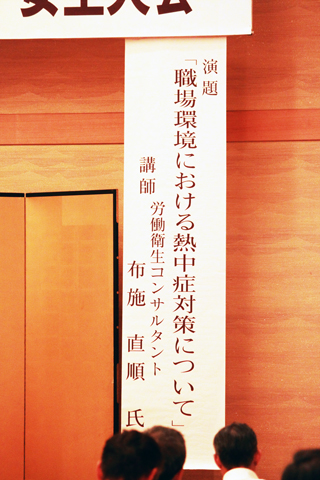 安全大会
演題
「職場環境における熱中症対策について」
講師
労働衛生コンサルタント
布施 直順 氏